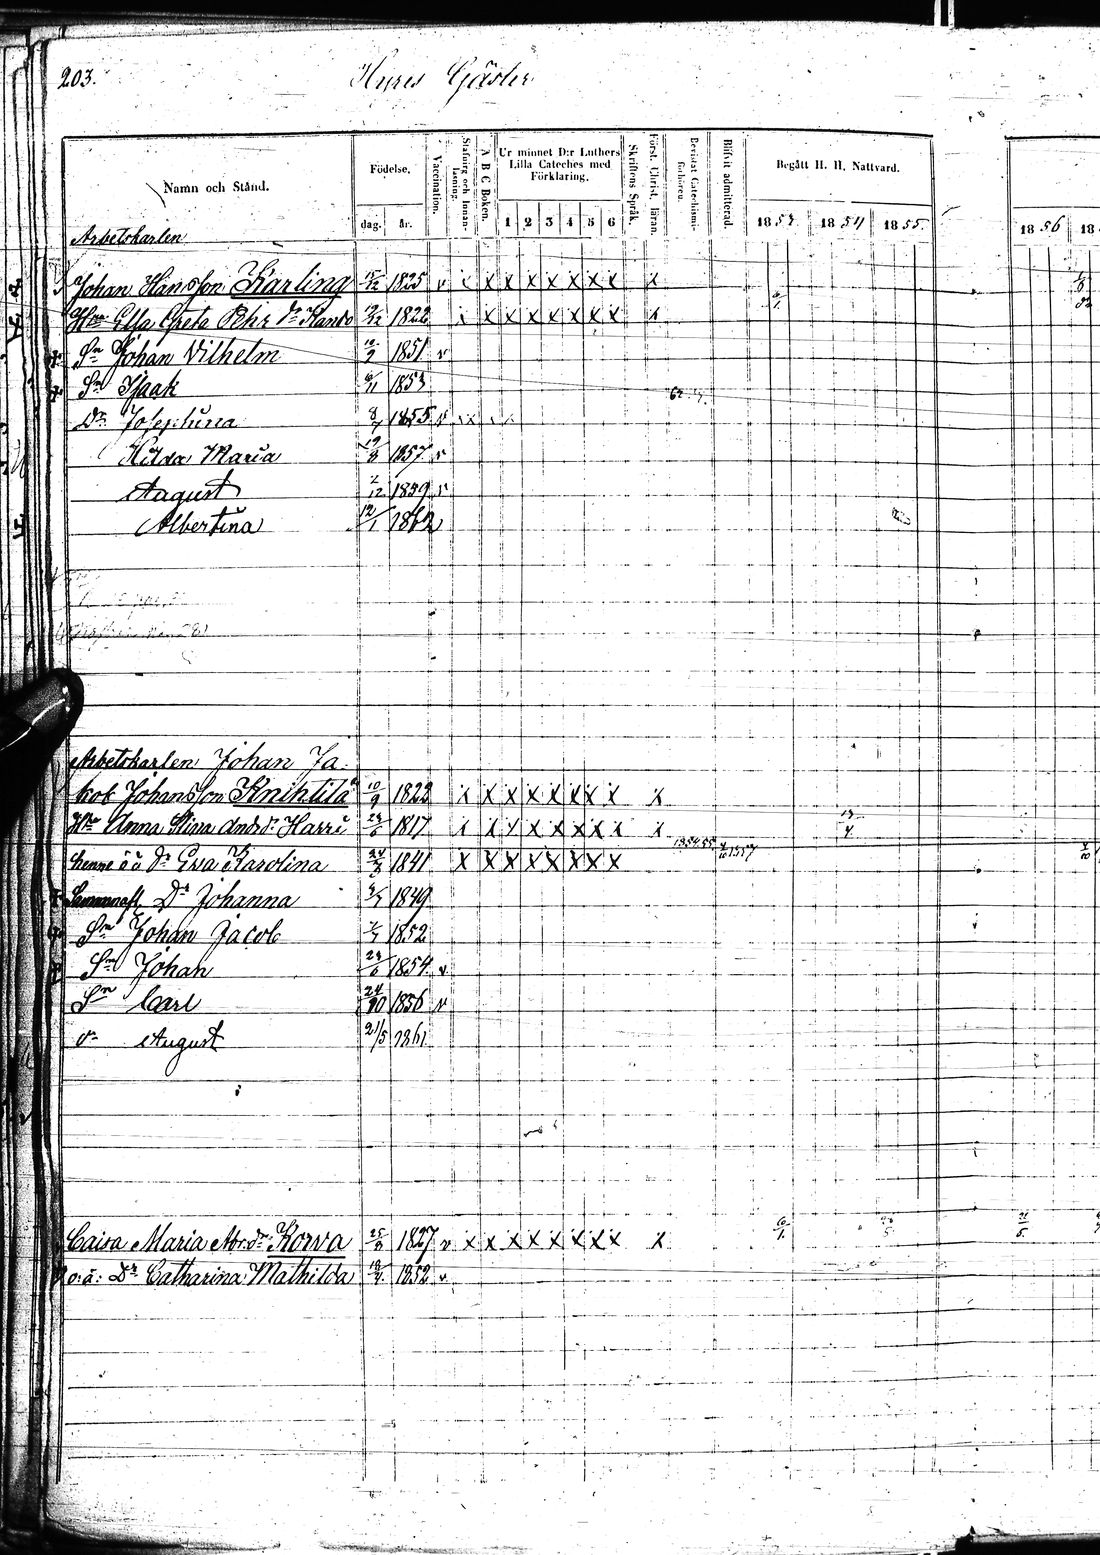 203.
Hyres Gäster
Namn och Stånd.
Födelse,
dag. år.
Vaccination.
Stafning och Innanläsning.
A B C Boken.
Ur minnet D:r Luthers Lilla Cateches med Förklaring.
1 2 3 4 5 6
Skriftens Språk.
Först. Christ. läran.
Bevistat Catechismiförhören.
Blifvit admitterad.
Begått H. H. Nattvard.
1853 1854 1855. 1856
Arbetskarlen
Johan Hansson Karling 15/12 1825 v x x x x x x x x x
Hru Ella Greta Pehr dr 1822 x x x x x x x x x
Sn Johan Vilhelm 1851 v
Sn Isaak 6/11 1853
Dr Josephina 8/7 1855 v x x
Hilda Maria 19/8 1857 v
August 2/12 1859 v
Albertina 12/1 1862
Arbetskarlen Johan Ja-
kob Johansson Knihtilä 10/9 1822 x x x x x x x x x
Hru Anna Stina Andr dr Harri 23/6 1817 x x x x x x x x x
henne oä dr Eva Karolina 24/8 1841 x x x x x x x x 1854 55 1857
Dr Johanna 1849
Sn Johan Jacob 1852
Sn Johan 23/6 1854 v
Sn Carl 24/10 1856 v
August 21/5 1861
Caisa Maria Abr. dr Korva 25/3 1827 v x x x x x x x x x
o: ä: Dr Catharina Mathilda 1852 v